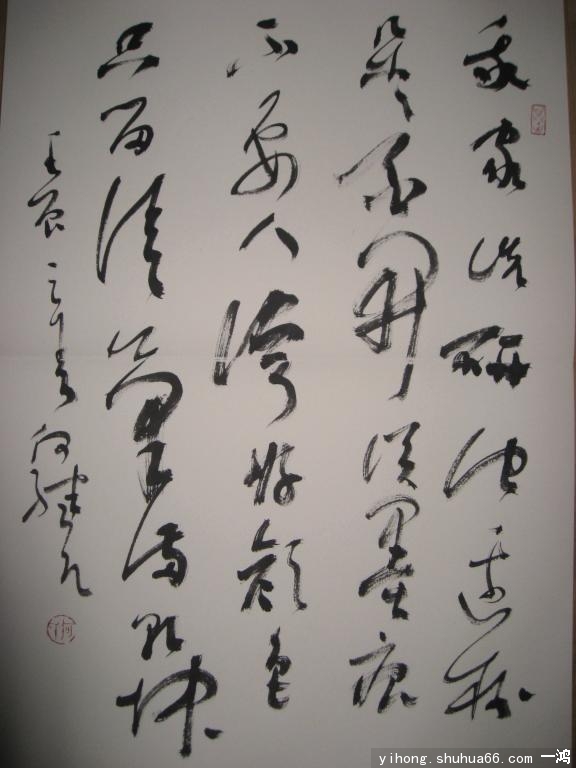 我家洗研池边树
朵朵花開淡墨痕
不要人誇好顔色
只留清氣滿乾坤
壬辰
何
yihong.shuhua66.com 一鸿